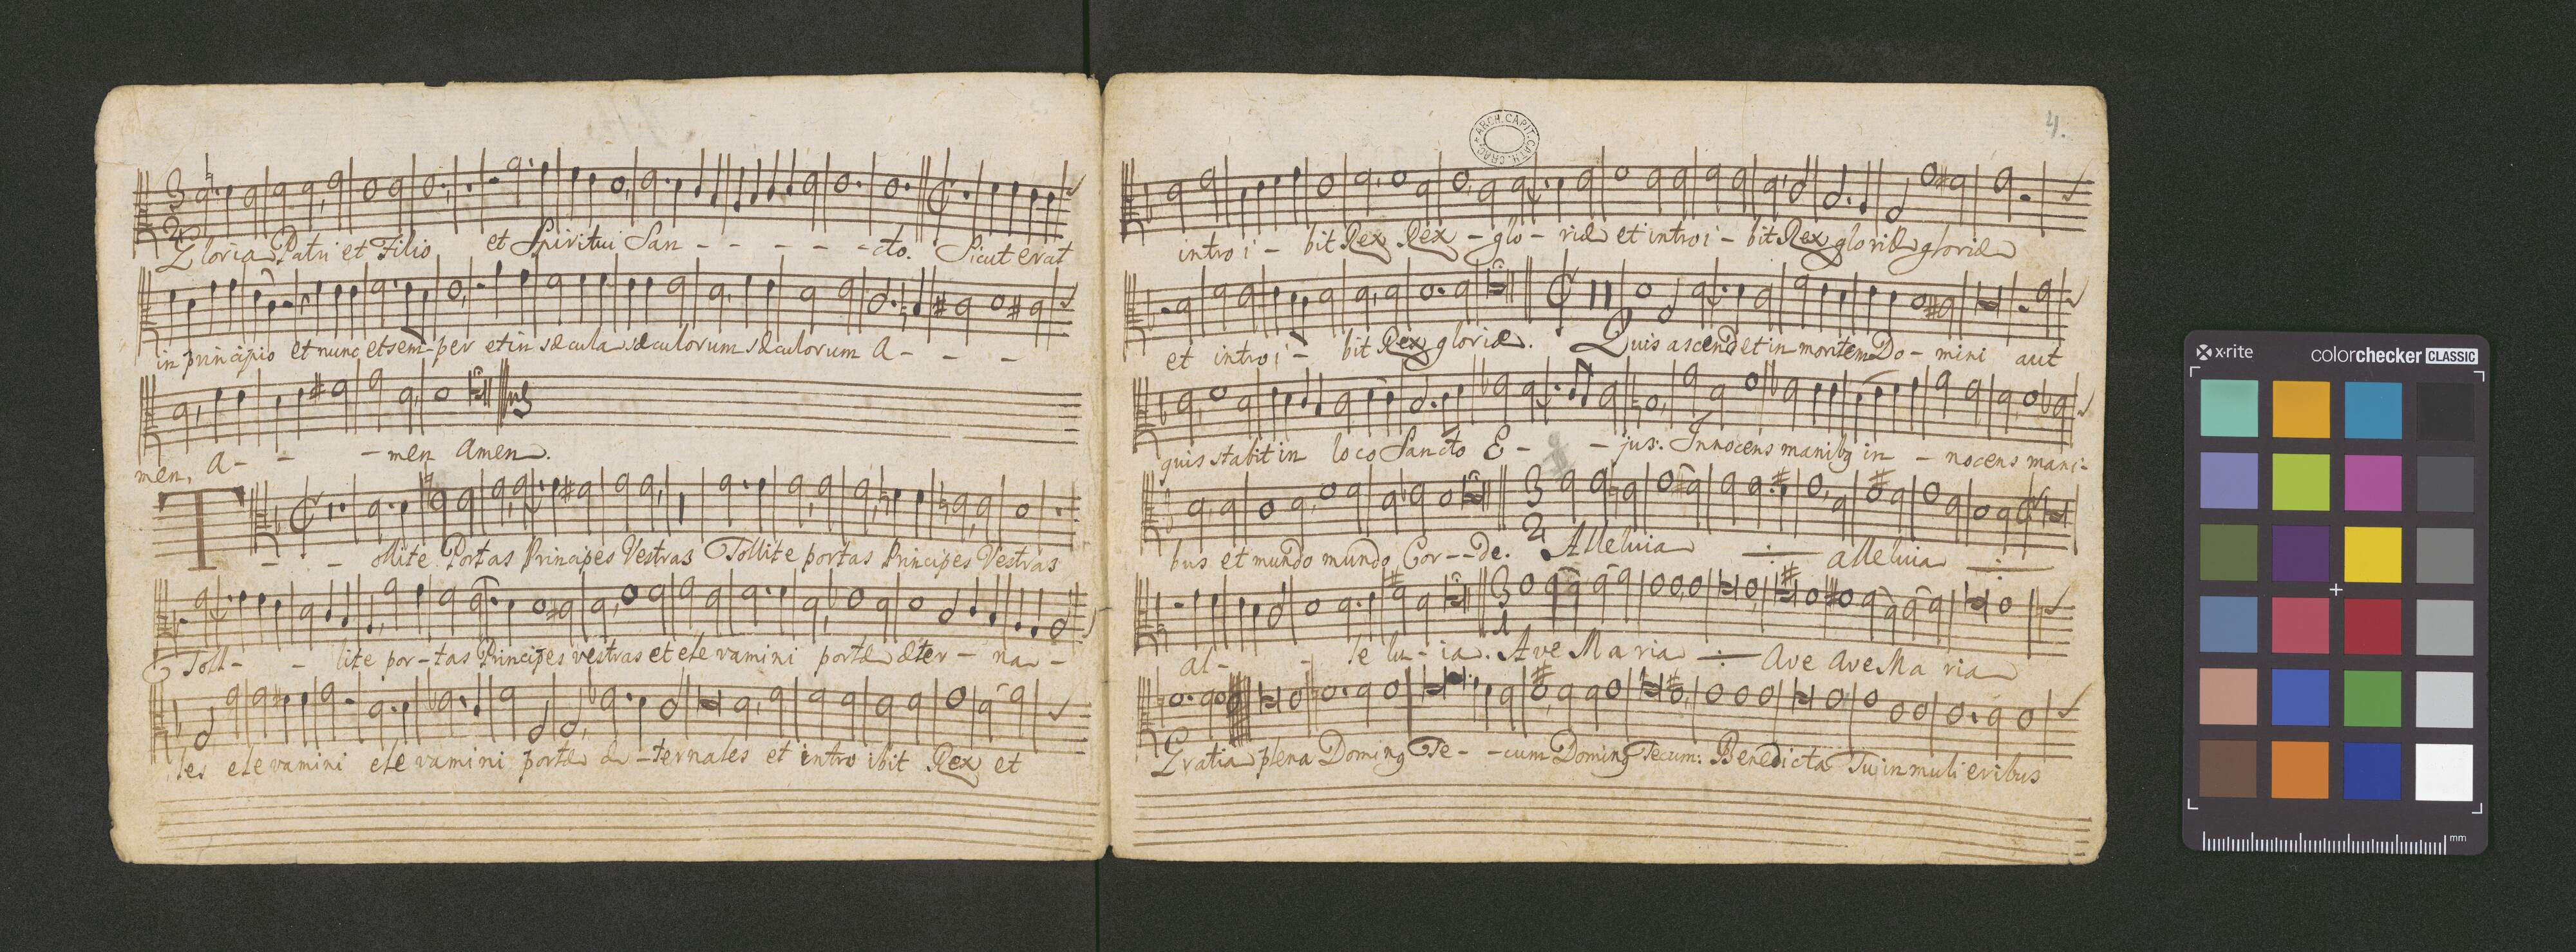 Gloria Patri et Filio et Spiritui San - - - - - cto. Sicut erat
in principio et nunc et sem- per et in sæcula sæculorum sæculorum A - - -
men, A - - - men Amen.
T - - ollite Portas Principes Vestras Tollite portas Principes Vestras
Toll - - lite por - tas Principes vestras et elevamini portæ æter - na -
les elevamini elevamini portæ æ - ternales et intro ibit Rex et
4.
ARCH. CAPIT. CATH. CRAC.
intro i - bit Rex Rex - glo - riæ et introi - bit Rex gloriæ gloriæ
et introi - bit Rex gloriæ. Quis ascendet in montem Do - mini aut
quis stabit in loco Sancto E - - jus: Innocens manibg in - nocens mani-
bus et mundo mundo Cor - - de. Alleluia alleluia
al - - le lu - ia. Ave Maria Ave Ave Ma ria
Gratia plena Doming Te - - cum Doming Tecum: Benedicta Tu in mulieribus
x·rite colorchecker CLASSIC
mm